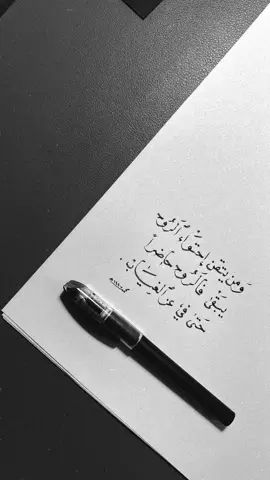 وَمن يتقن إحتواء الروح
يبقىٰ فالروح حاضراً
حَتىٰ في عز الغياب .